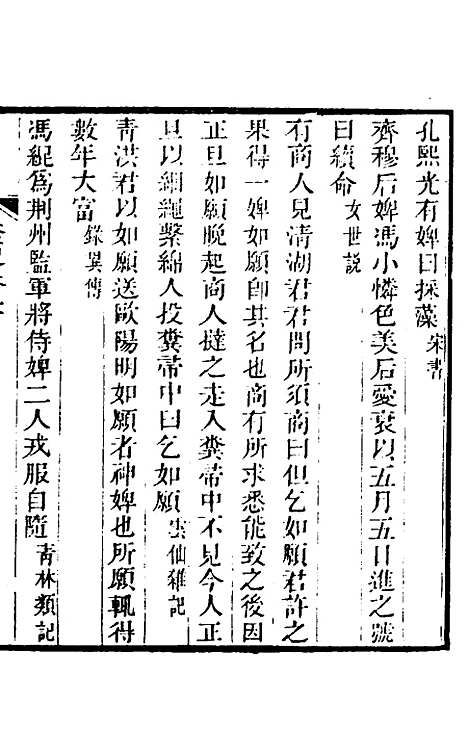 孔熙光有婢曰採藻宋書
齊穆后婢馮小憐色美后愛衰以五月五日進之號
曰續命女世説
有商人見清湖君君問所須商曰但乞如願君許之
果得一婢如願卽其名也商有所求悉能致之後因
正旦如願晚起商人撻之走入糞帚中不見今人正
旦以細繩繫綿人投糞帚中曰乞如願雲仙雜記
青洪君以如願送歐陽明如願者神婢也所願輒得
數年大富錄異傳
馮緄爲荆州監軍將侍婢二人戎服自隨青林類記